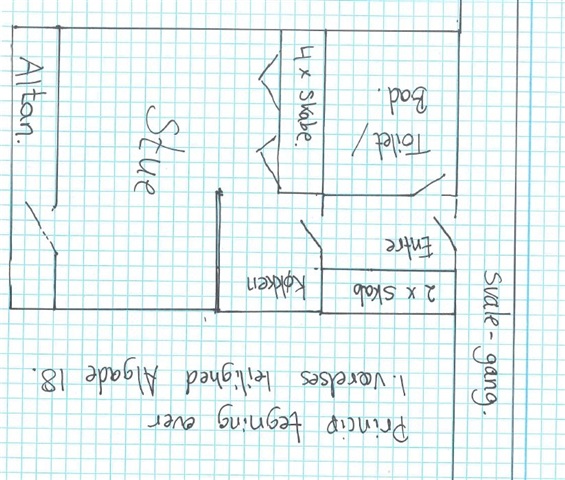 Princip tegning over
1. værelses leilighed Algade 18.
Svale-gang.
2 x Skab
Køkken
Entre
Toilet/
Bad.
4 x Skabe.
Stue
Altan.